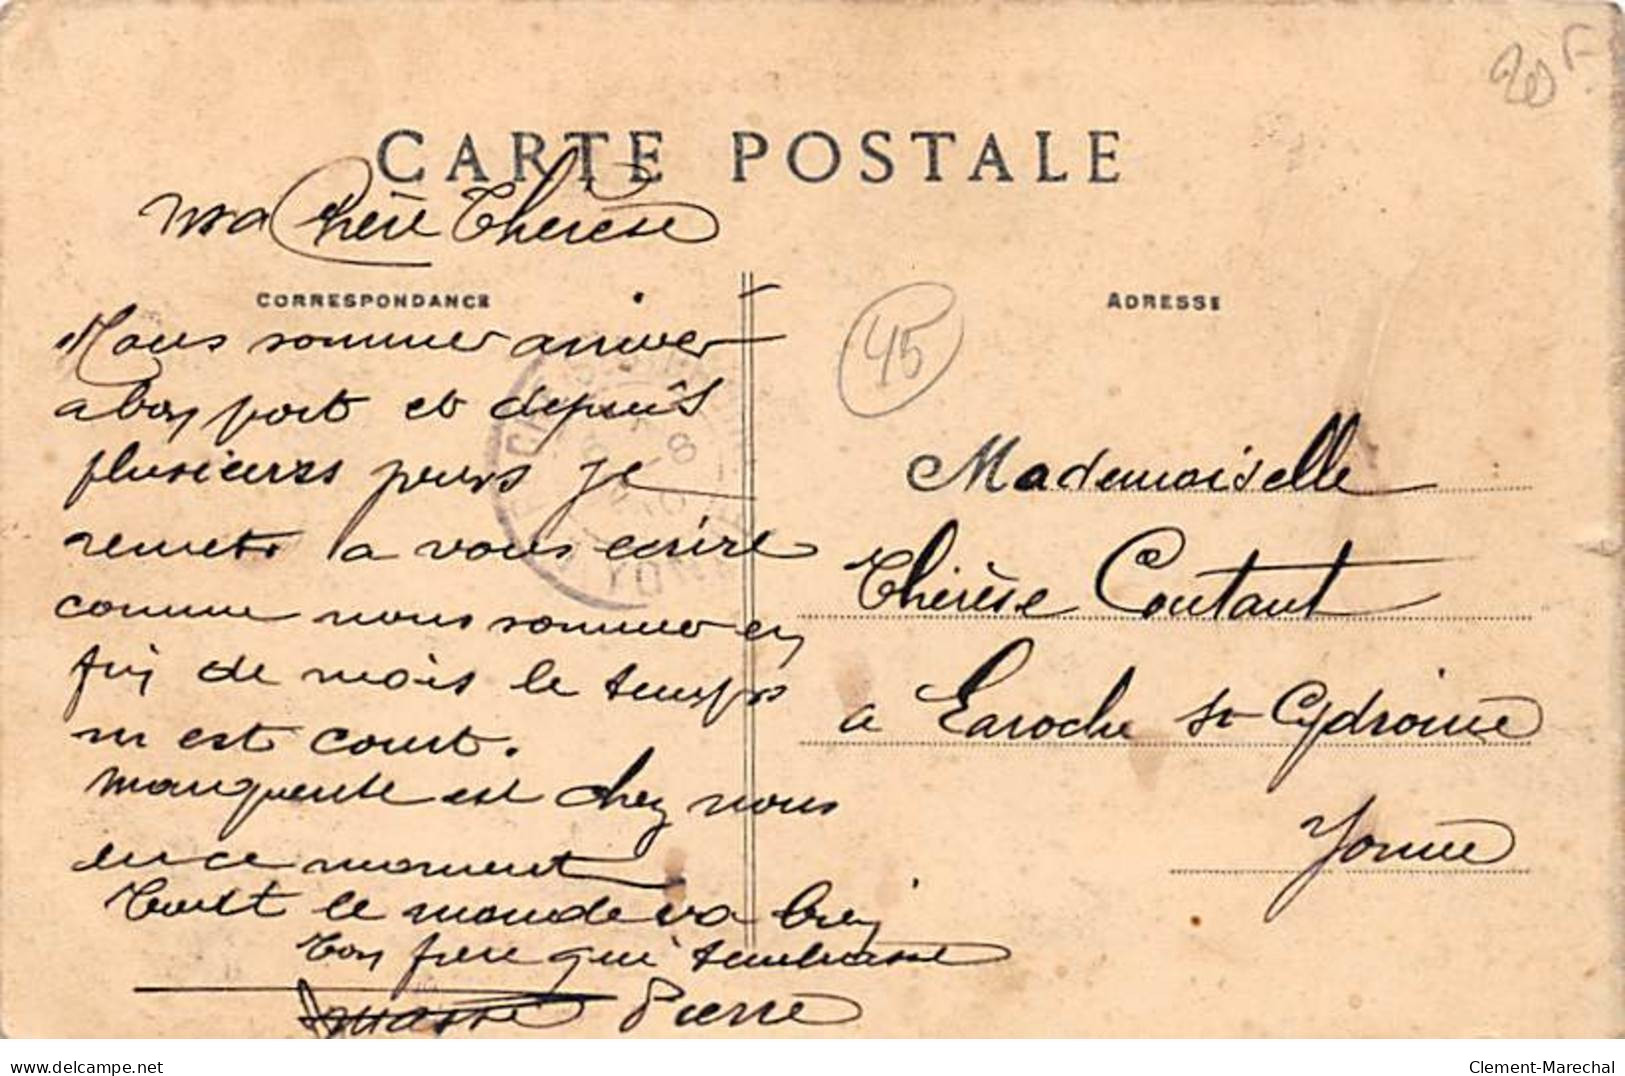 20 F
CARTE POSTALE
Ma Chère Thérèse
CORRESPONDANCE
ADRESSE
45
Nous sommes arriver
a bon port et depuis
plusieurs jours je
remets a vous écrire
comme nous sommes en
fin de mois le temps
m est court.
Manquente est chez nous
en ce moment
Tout le monde va bien
Ton frere qui tembrasse
Pierre
Mademoiselle
Thérèse Coutant
a Laroche St Cydroine
Yonne
YONNE
www.delcampe.net
Clement-Marechal